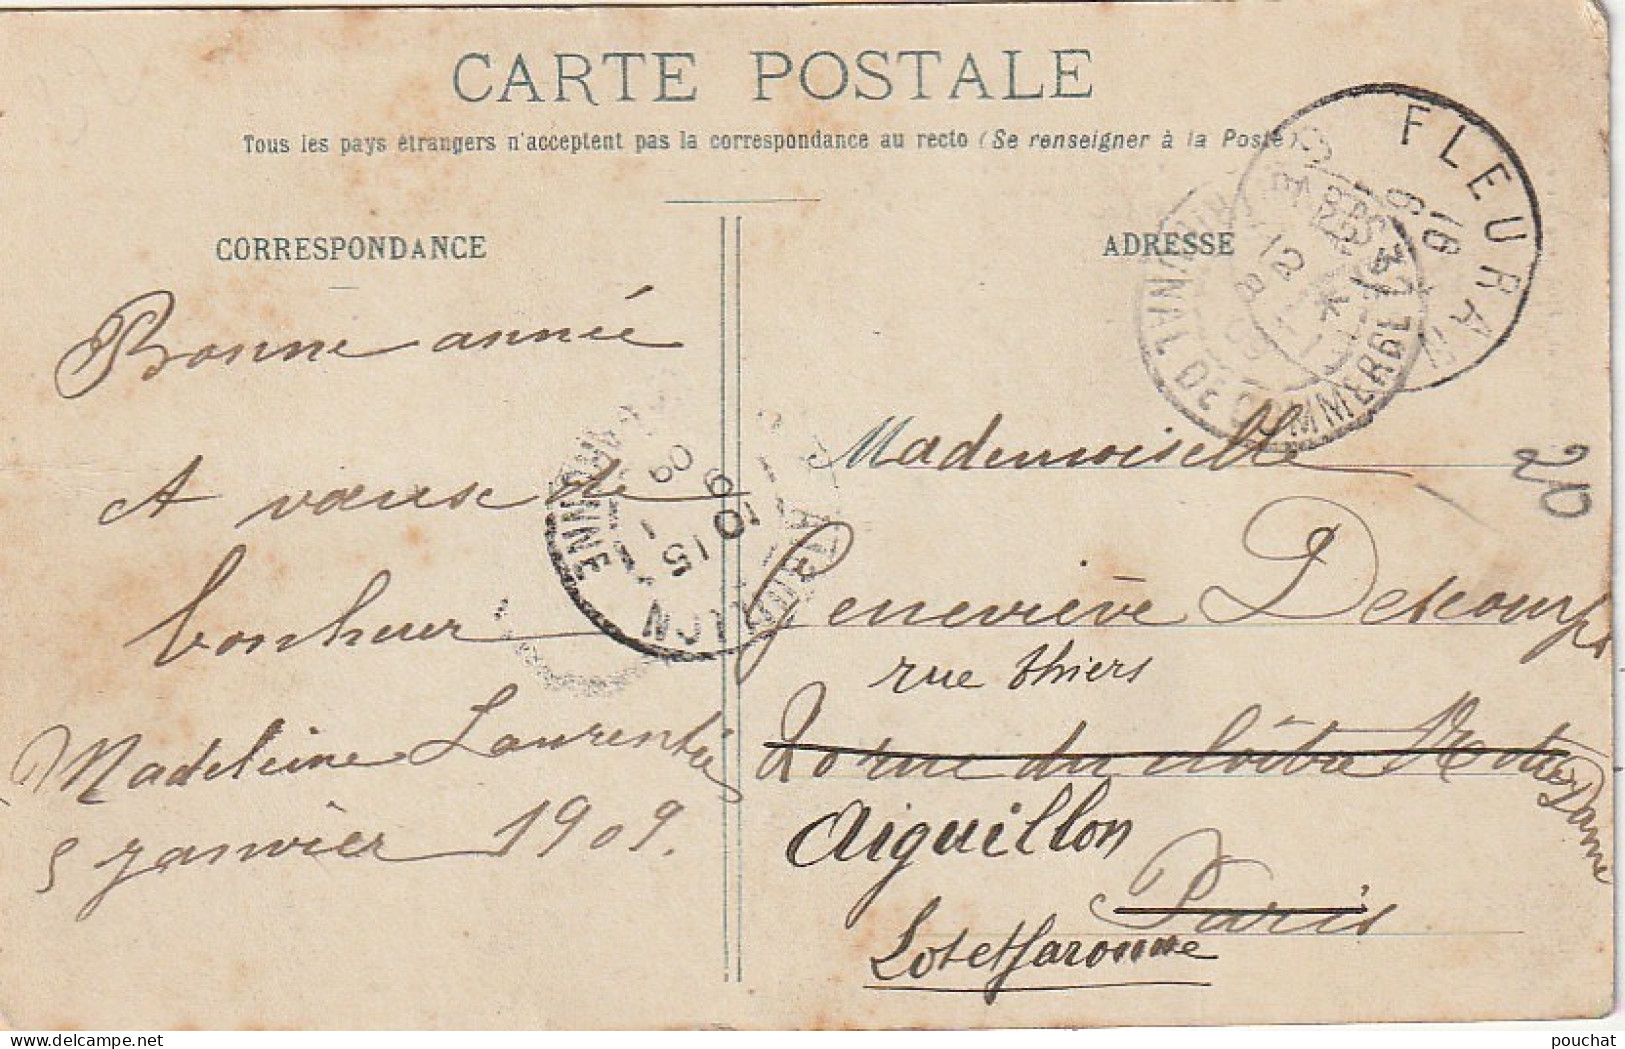 CARTE POSTALE
Tous les pays étrangers n'acceptent pas la correspondance au recto (Se renseigner à la Poste)
CORRESPONDANCE
ADRESSE
Bonne année
A vœux de
bonheur
Madeleine
5 janvier 1909.
FLEURAN
16
DE COMMERCE
09
15
Mademoiselle
Geneviève
rue thiers
20 rue du cloître Notre Dame
Aiguillon
Paris
Lot et Garonne
20
pouchat